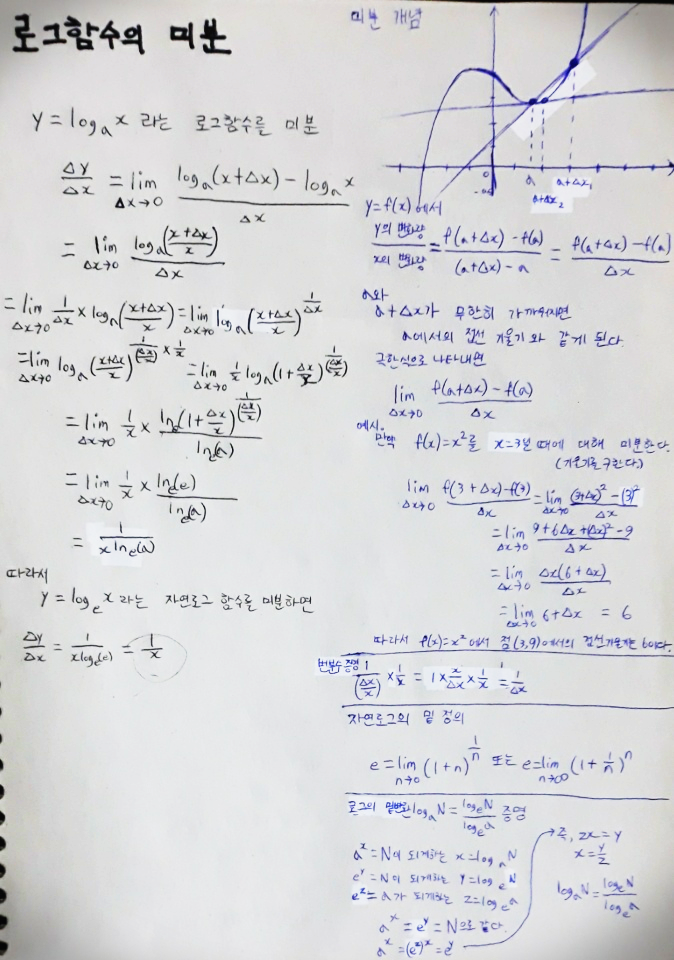 로그함수의 미분
y = logₐx 라는 로그함수를 미분
Δy/Δx = lim_{Δx→0} (logₐ(x+Δx) − logₐx)/Δx
= lim_{Δx→0} logₐ((x+Δx)/x)/Δx
= lim_{Δx→0} 1/Δx × logₐ((x+Δx)/x) = lim_{Δx→0} logₐ((x+Δx)/x)^{1/Δx}
= lim_{Δx→0} logₐ((x+Δx)/x)^{1/(Δx/x) × 1/x} = lim_{Δx→0} 1/x logₐ(1+Δx/x)^{1/(Δx/x)}
= lim_{Δx→0} 1/x × lnₑ(1+Δx/x)^{1/(Δx/x)}/lnₑ(a)
= lim_{Δx→0} 1/x × lnₑ(e)/lnₑ(a)
= 1/(x lnₑ(a))
따라서
y = logₑx 라는 자연로그 함수를 미분하면
Δy/Δx = 1/(x logₑ(e)) = 1/x
미분 개념
0
a
a+Δx₁
a+Δx₂
y=f(x)에서
y의 변화량/x의 변화량 = (f(a+Δx) − f(a))/((a+Δx) − a) = (f(a+Δx) − f(a))/Δx
a와
a+Δx가 무한히 가까워지면
a에서의 접선 기울기와 같게 된다.
극한식으로 나타내면
lim_{Δx→0} (f(a+Δx) − f(a))/Δx
예시.
만약 f(x)=x²를 x=3일 때에 대해 미분한다.
(기울기를 구한다.)
lim_{Δx→0} (f(3+Δx)−f(3))/Δx = lim_{Δx→0} ((3+Δx)² − (3)²)/Δx
= lim_{Δx→0} (9+6Δx+(Δx)²−9)/Δx
= lim_{Δx→0} Δx(6+Δx)/Δx
= lim_{Δx→0} 6+Δx = 6
따라서 f(x)=x²에서 점(3,9)에서의 접선기울기는 6이다.
번분수 증명
1/(Δx/x) × 1/x = 1 × x/Δx × 1/x = 1/Δx
자연로그의 밑 정의
e = lim_{n→0} (1+n)^{1/n} 또는 e = lim_{n→∞} (1+1/n)^n
로그의 밑변환 logₐN = logₑN/logₑa 증명
a^x = N이 되게하는 x = logₐN
e^y = N이 되게하는 y = logₑN
e^z = a가 되게하는 z = logₑa
a^x = e^y = N으로 같다.
a^x = (e^z)^x = e^y
→ 즉, zx = y
x = y/z
logₐN = logₑN/logₑa